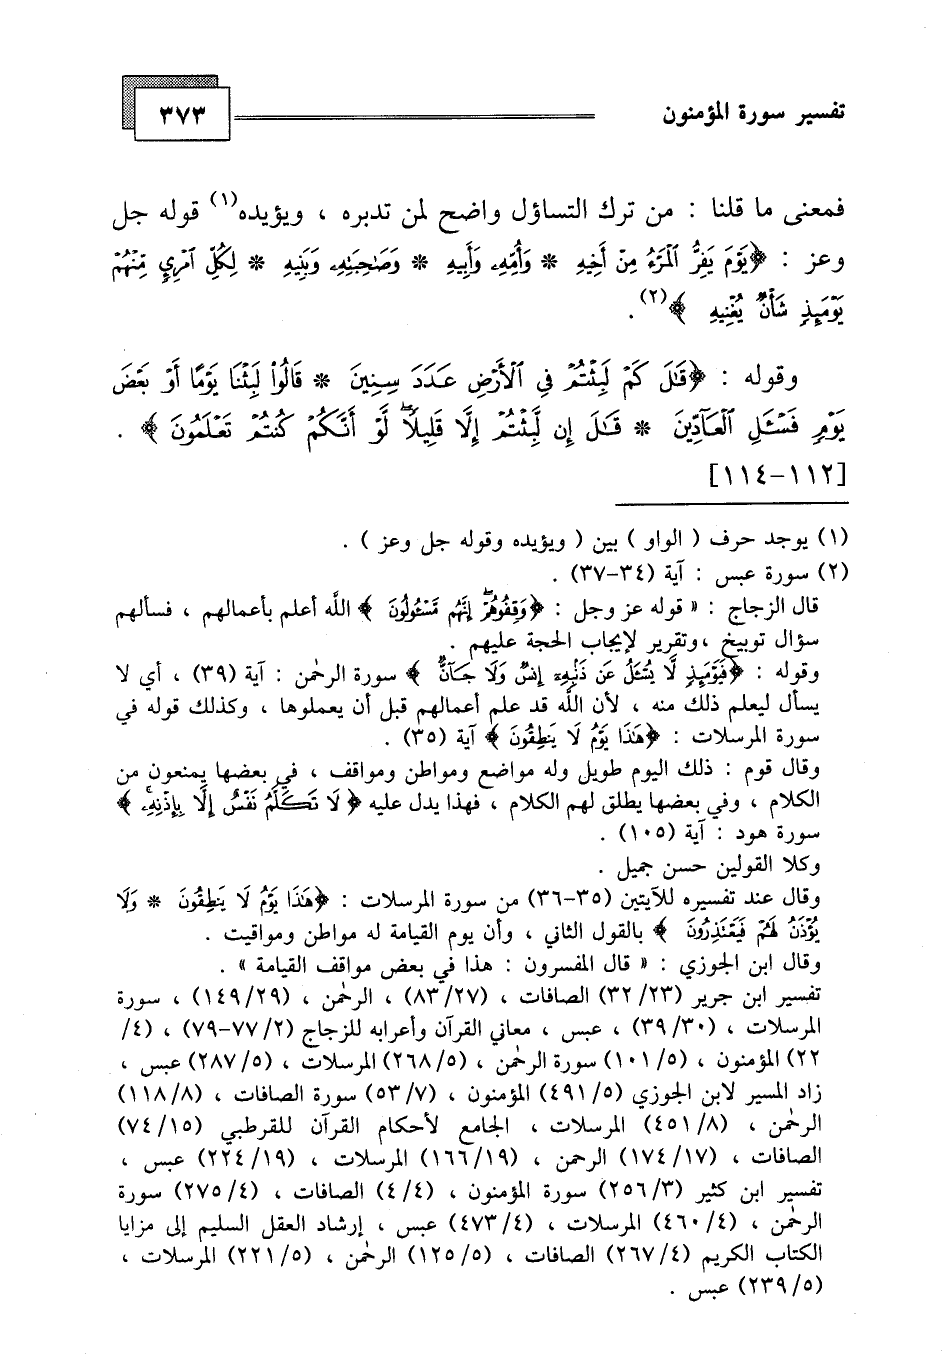 تفسير سورة المؤمنون
٣٧٣
فمعنى ما قلنا : من ترك التساؤل واضح لمن تدبره ، ويؤيده(١) قوله جل
وعز : ﴿يَوْمَ يَفِرُّ ٱلْمَرْءُ مِنْ أَخِيهِ * وَأُمِّهِۦ وَأَبِيهِ * وَصَٰحِبَتِهِۦ وَبَنِيهِ * لِكُلِّ ٱمْرِئٍ مِّنْهُمْ
يَوْمَئِذٍ شَأْنٌ يُغْنِيهِ ﴾(٢) .
وقوله : ﴿قَٰلَ كَمْ لَبِثْتُمْ فِى ٱلْأَرْضِ عَدَدَ سِنِينَ * قَالُوا۟ لَبِثْنَا يَوْمًا أَوْ بَعْضَ
يَوْمٍ فَسْـَٔلِ ٱلْعَآدِّينَ * قَٰلَ إِن لَّبِثْتُمْ إِلَّا قَلِيلًا ۖ لَّوْ أَنَّكُمْ كُنتُمْ تَعْلَمُونَ ﴾ .
[١١٢-١١٤]
(١) يوجد حرف ( الواو ) بين ( ويؤيده وقوله جل وعز ) .
(٢) سورة عبس : آية (٣٤-٣٧) .
قال الزجاج : « قوله عز وجل : ﴿وَقِفُوهُمْ ۖ إِنَّهُم مَّسْـُٔولُونَ ﴾ الله أعلم بأعمالهم ، فسألهم
سؤال توبيخ ،وتقرير لإيجاب الحجة عليهم .
وقوله : ﴿فَيَوْمَئِذٍ لَّا يُسْـَٔلُ عَن ذَنۢبِهِۦٓ إِنسٌ وَلَا جَآنٌّ ﴾ سورة الرحمٰن : آية (٣٩) ، أي لا
يسأل ليعلم ذلك منه ، لأن الله قد علم أعمالهم قبل أن يعملوها ، وكذلك قوله في
سورة المرسلات : ﴿هَٰذَا يَوْمُ لَا يَنطِقُونَ ﴾ آية (٣٥) .
وقال قوم : ذلك اليوم طويل وله مواضع ومواطن ومواقف ، في بعضها يمنعون من
الكلام ، وفي بعضها يطلق لهم الكلام ، فهذا يدل عليه ﴿ لَا تَكَلَّمُ نَفْسٌ إِلَّا بِإِذْنِهِۦ ۚ ﴾
سورة هود : آية (١٠٥) .
وكلا القولين حسن جميل .
وقال عند تفسيره للآيتين (٣٥-٣٦) من سورة المرسلات : ﴿هَٰذَا يَوْمُ لَا يَنطِقُونَ * وَلَا
يُؤْذَنُ لَهُمْ فَيَعْتَذِرُونَ ﴾ بالقول الثاني ، وأن يوم القيامة له مواطن ومواقيت .
وقال ابن الجوزي : « قال المفسرون : هذا في بعض مواقف القيامة » .
تفسير ابن جرير (٣٢/٢٣) الصافات ، (٨٣/٢٧) ، الرحمٰن ، (١٤٩/٢٩) ، سورة
المرسلات ، (٣٩/٣٠) ، عبس ، معاني القرآن وأعرابه للزجاج (٧٧/٢-٧٩) ، (٤/
٢٢) المؤمنون ، (١٠١/٥) سورة الرحمٰن ، (٢٦٨/٥) المرسلات ، (٢٨٧/٥) عبس ،
زاد المسير لابن الجوزي (٤٩١/٥) المؤمنون ، (٥٣/٧) سورة الصافات ، (١١٨/٨)
الرحمٰن ، (٤٥١/٨) المرسلات ، الجامع لأحكام القرآن للقرطبي (٧٤/١٥)
الصافات ، (١٧٤/١٧) الرحمن ، (١٦٦/١٩) المرسلات ، (٢٢٤/١٩) عبس ،
تفسير ابن كثير (٢٥٦/٣) سورة المؤمنون ، (٤/٤) الصافات ، (٢٧٥/٤) سورة
الرحمٰن ، (٤٦٠/٤) المرسلات ، (٤٧٣/٤) عبس ، إرشاد العقل السليم إلى مزايا
الكتاب الكريم (٢٦٧/٤) الصافات ، (١٢٥/٥) الرحمٰن ، (٢٢١/٥) المرسلات ،
(٢٣٩/٥) عبس .